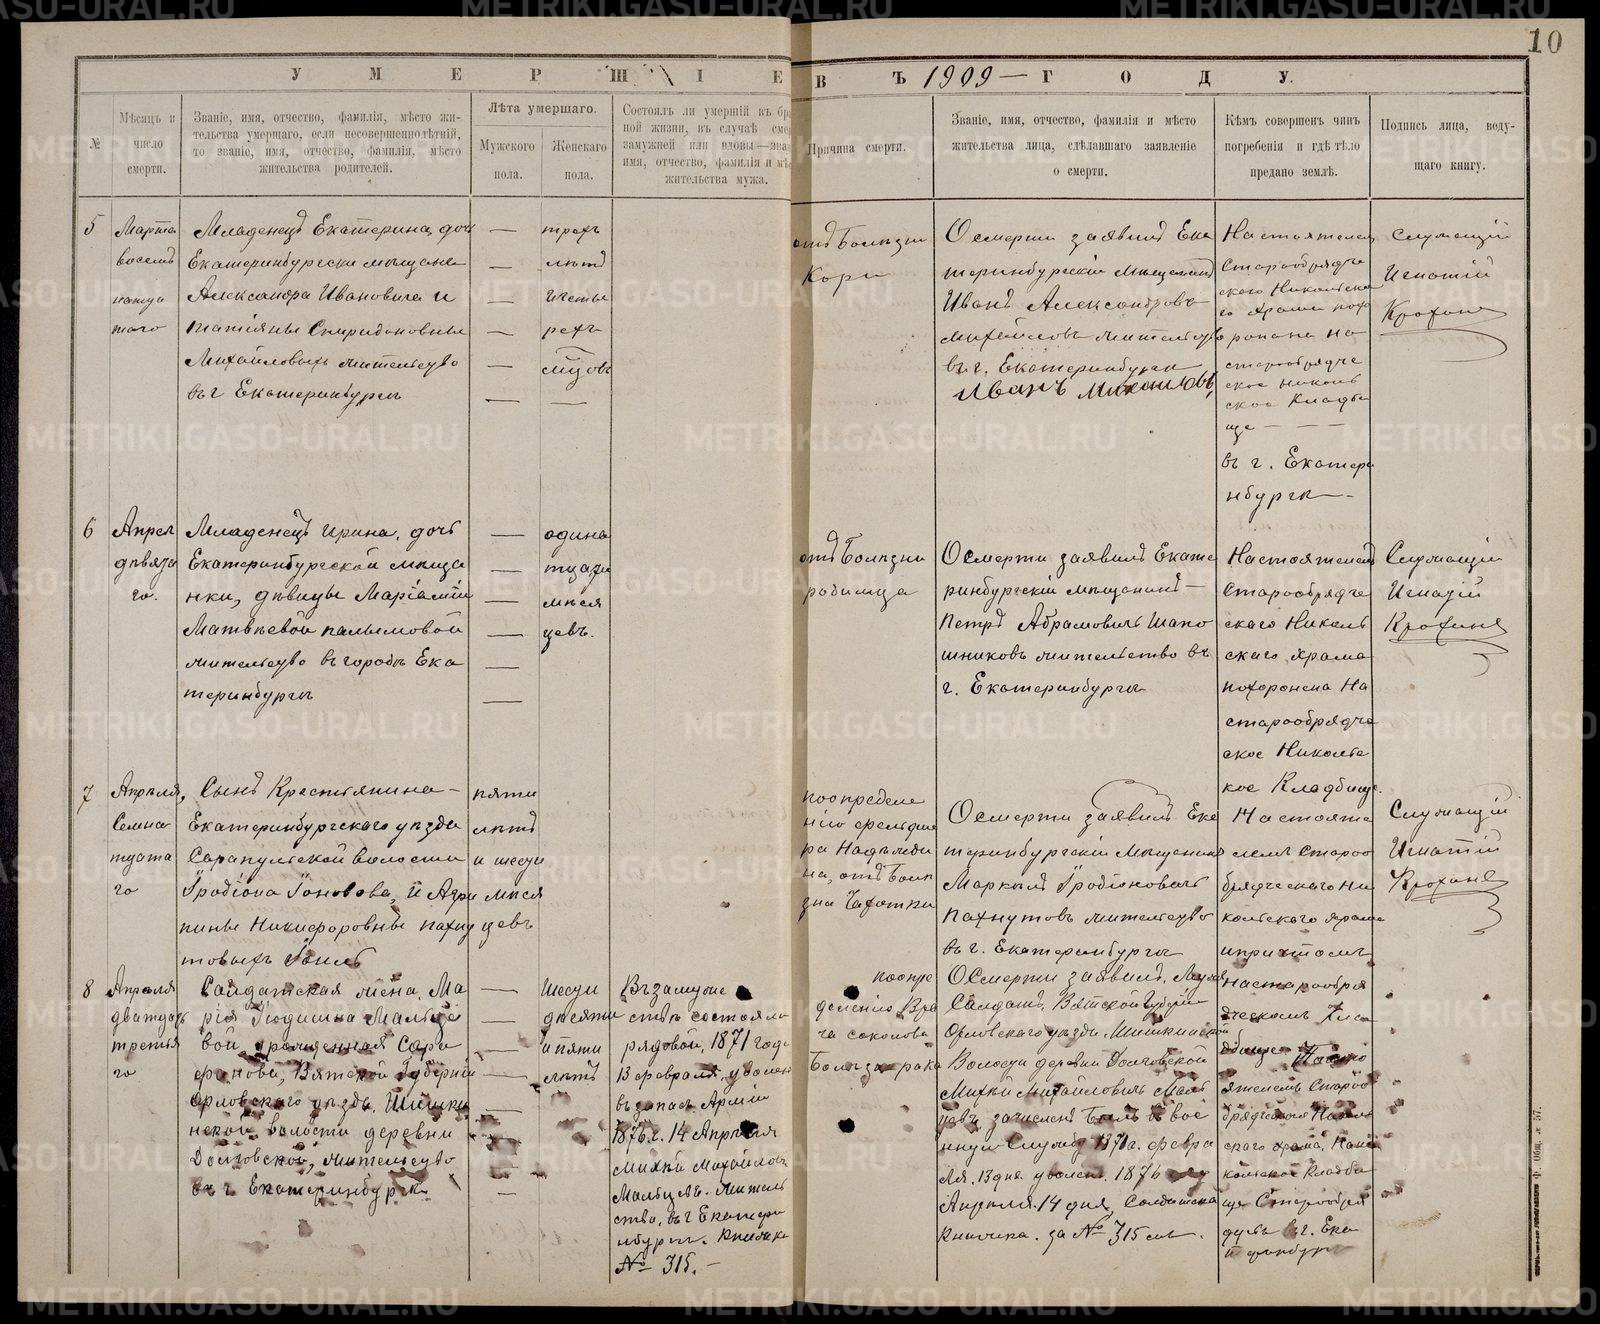 10
УМЕРШІЕ
ВЪ 1909 — ГОДУ.
№
Мѣсяцъ и
число
смерти.
Званіе, имя, отчество, фамилія, мѣсто жи-
тельства умершаго, если несовершеннолѣтній,
то званіе, имя, отчество, фамилія, мѣсто
жительства родителей.
Лѣта умершаго.
Мужского
пола.
Женскаго
пола.
Состоялъ ли умершій въ бра
ной жизни, въ случаѣ сме
замужней или вдовы—зва
имя, отчество, фамилія и мѣ
жительства мужа.
Причина смерти.
Званіе, имя, отчество, фамилія и мѣсто
жительства лица, сдѣлавшаго заявленіе
о смерти.
Кѣмъ совершенъ чинъ
погребенія и гдѣ тѣло
предано землѣ.
Подпись лица, веду-
щаго книгу.
5
Марта
восемь
натца
таго
Младенецъ Екатерина, доч
Екатеринбургски мѣщане
Александра Ивановича и
татіяны Спиридоновны
Михайловыхъ жительство
въ г Екатеринбургѣ
трехъ
лѣтъ
ичеты
рехъ
мѣцовъ
отъ болѣзни
Кори
Осмерти заявилъ Ека
теринбурскій Мѣщанинъ
Иванъ Александровъ
Михайловъ жительство
въ г. Екатеринбургѣ
Иванъ Михаиловъ
Настоятелем
Старообрядче
скаго Никольска
го храма похо
ронана на
старообрядче
ское николь
ское Кладби
ще — — —
въ г. Екатери
нбургѣ —
Служащій
Игнатій
6
Апрел
дѣвята
го.
Младенецъ ирина, дочь
Екатеринбургской мѣща
нки, дѣвицы Маріамии
Матвѣевой палымовой
жительство въ городѣ Ека
теринбургѣ
одина
тцати
мѣся
цевъ.
отъ болѣзни
родимца
Осмерти заявилъ Екате
ринбургскій мѣщанинъ —
Петръ Абрамовичъ Шапо
шниковъ жительство въ
г. Екатеринбургѣ
Настоятелемъ
Старообрядче
скаго Николь
скаго храма
похоронена на
старообрядче
ское Николь
кое Кладбище.
Служащій
Игнатій
7
Апрѣля,
Семна
тцата
го
Сынъ Крестьянина —
Екатеринбургскаго уѣзда
Сарапульской волости
Гродіона Іоновова, и Агри
пины Никифоровны пахну
товыхъ
пяти
лѣтъ
и шести
мѣся
цевъ
поопределе
нію фельдше
ра Надѣжди
на, отъ болѣ
зни Чахотки
Осмерти заявилъ Ека
теринбургскій Мѣщанинъ
Маркелъ Гродіоновичъ
Пахнутовъ жительство
въ г. Екатеринбургѣ
Настояте
лемъ Старо
брядческаго Ни
кольскаго храма
ипричтомъ
Служащій
Игнатій
8
Апрѣля
дватцать
третья
го
Салдатская жена, Ма
рія Мальце
вой урожденная Сара
фанова, Вятской Губерніи
Орловскаго уѣзда, Шишки
нской волости деревни
Долговской, жительство
въ г. Екатеринбургѣ
шести
дѣсяти
ипяти
лѣтъ
Въ замуже
ствѣ состояла
рядовой, 1871 года
13 февраля, уволен
въ запас Арміи
1876. г. 14 Апрѣля
Михѣй Михайловъ
Мальцевъ. житель
ство, въ г Екатери
нбургѣ. Книжка
№ 315. —
поопре
деленію Вра
ча соколова
Болѣзи рака
Осмерти заявилъ,
Салдатъ, Вятской губерніи
Орловскаго уѣзда, Шишкинской
Волости деревни Долговской
Михѣй Михайловичъ Маль
цовъ, зачисленъ былъ въ вое
нную Службу 1871 г. февра
ля. 13 дня уволен. 1876 году
Апрѣля. 14 дня, Солдатская
Книжка. за № 315 см.
настарообря
дческомъ Кла
дбище Насто
ятелемъ Старо
брядческаго Николь
скаго храма,
кольское Кладби
ще Старообря
дцевъ въ г. Ека
теринбург